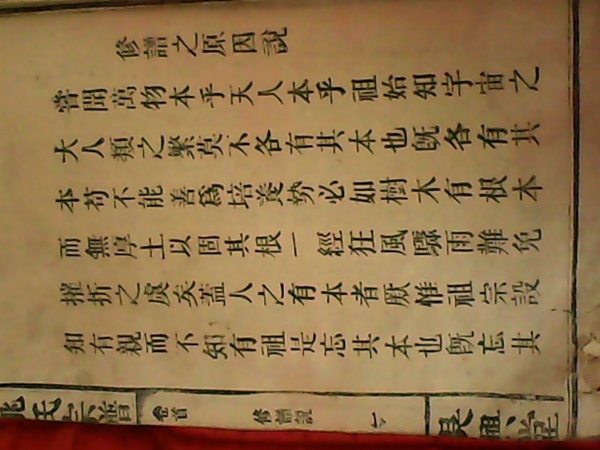 修譜之原因說
嘗聞萬物本乎天人本乎祖始知宇宙之
大人類之繁莫不各有其本也旣各有其
本苟不能善爲培養勢必如樹木有根本
而無厚土以固其根一經狂風驟雨難免
摧折之虞矣蓋人之有本者厥惟祖宗設
知有親而不知有祖是忘其本也旣忘其
氏宗譜
卷首
修譜說
吳興堂